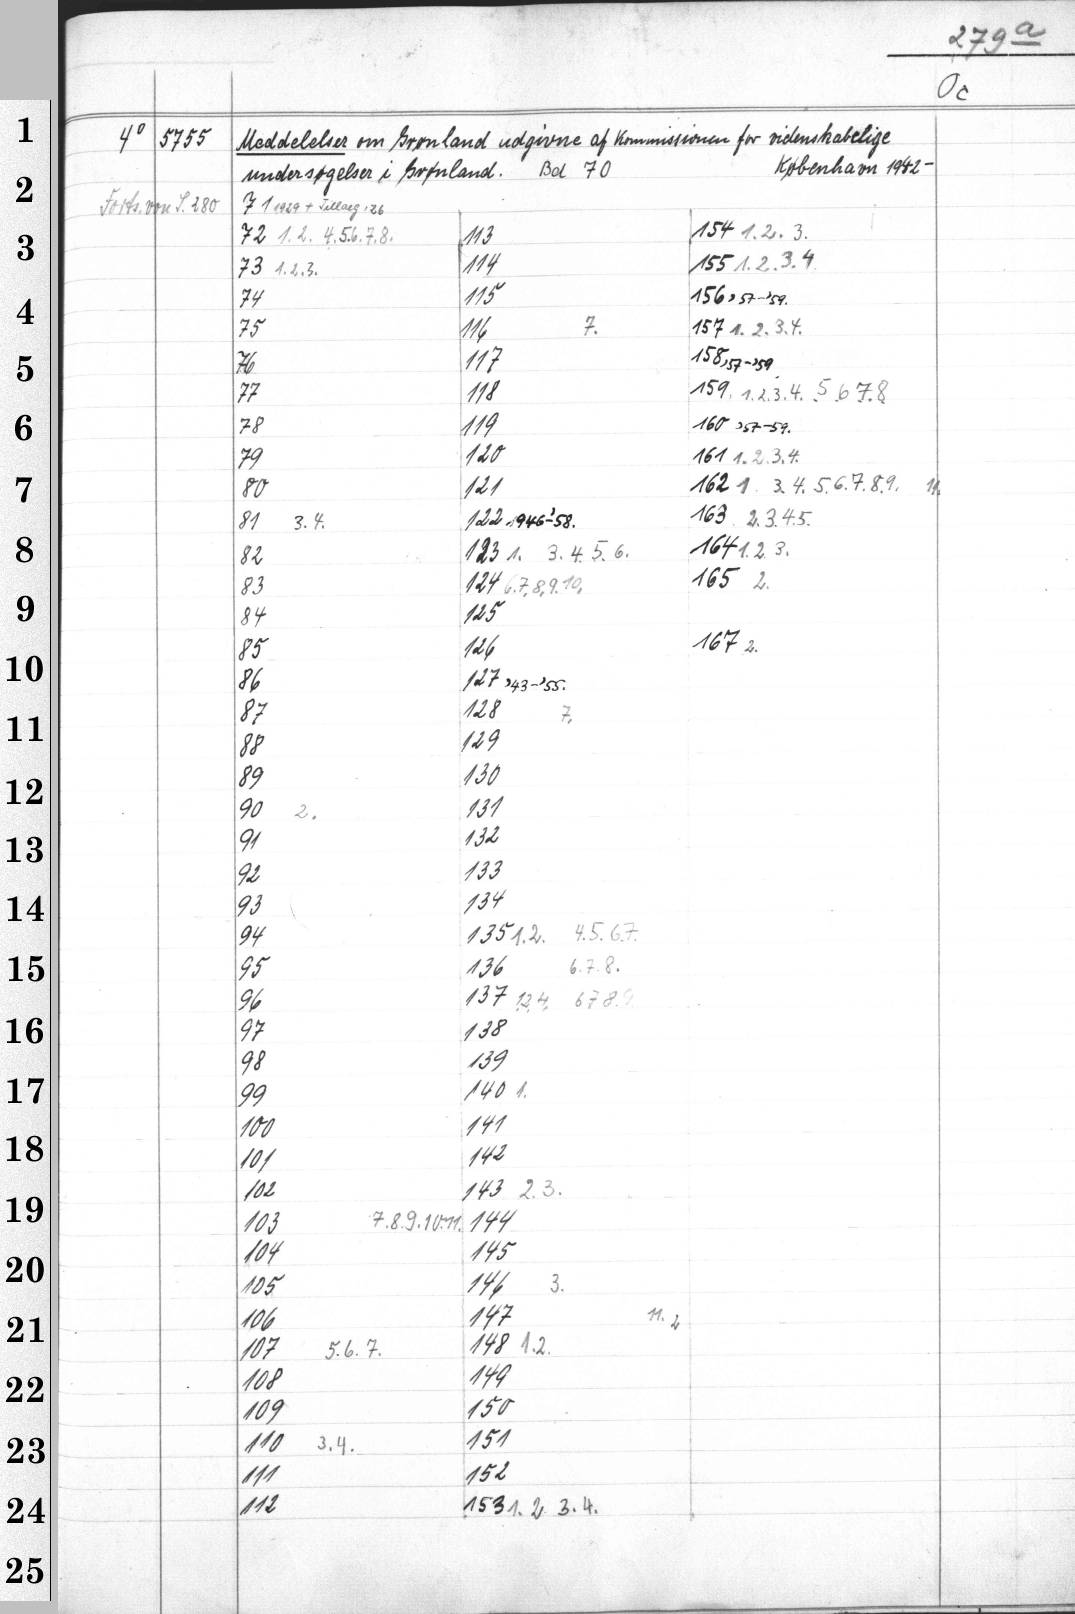 279a
Oc
4° 5755 Meddelelser om Grønland udgivne af Kommissionen for videnskabelige
undersøgelser i Grønland. Bd 70 København 1942-
Forts. von S. 280 71 1929 + Tillaeg 126
72 1. 2. 4.5.6.7.8. 113 154 1. 2. 3.
73 1.2.3. 114 155 1. 2. 3. 4.
74 115 156, '57-'59.
75 116 7. 157 1. 2. 3.4.
76 117 158, '57-'59
77 118 159. 1.2.3.4. 5 6 7.8
78 119 160 '57-59.
79 120 161 1. 2. 3.4.
80 121 162 1 3. 4. 5.6.7.8.9. 11.
81 3.4. 122 1946-'58. 163 2.3.4.5.
82 123 1. 3. 4. 5. 6. 164 1. 2. 3.
83 124 6.7.8.9.10. 165 2.
84 125
85 126 167 2.
86 127 '43-'55.
87 128 7.
88 129
89 130
90 2. 131
91 132
92 133
93 134
94 135 1.2. 4.5.6.7.
95 136 6.7.8.
96 137 12,4, 6 7 8.9
97 138
98 139
99 140 1.
100 141
101 142
102 143 2.3.
103 7.8.9.10.11. 144
104 145
105 146 3.
106 147 11. 2
107 5.6.7. 148 1.2.
108 149
109 150
110 3.4. 151
111 152
112 153 1. 2 3. 4.
1
2
3
4
5
6
7
8
9
10
11
12
13
14
15
16
17
18
19
20
21
22
23
24
25